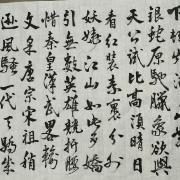 銀蛇原馳臘象欲與
天公試比高須晴日
看紅裝素裹分外
妖嬈江山如此多嬌
引無數英雄競折腰
惜秦皇漢武畧輸
文采唐宗宋祖稍
遜風騷一代天驕